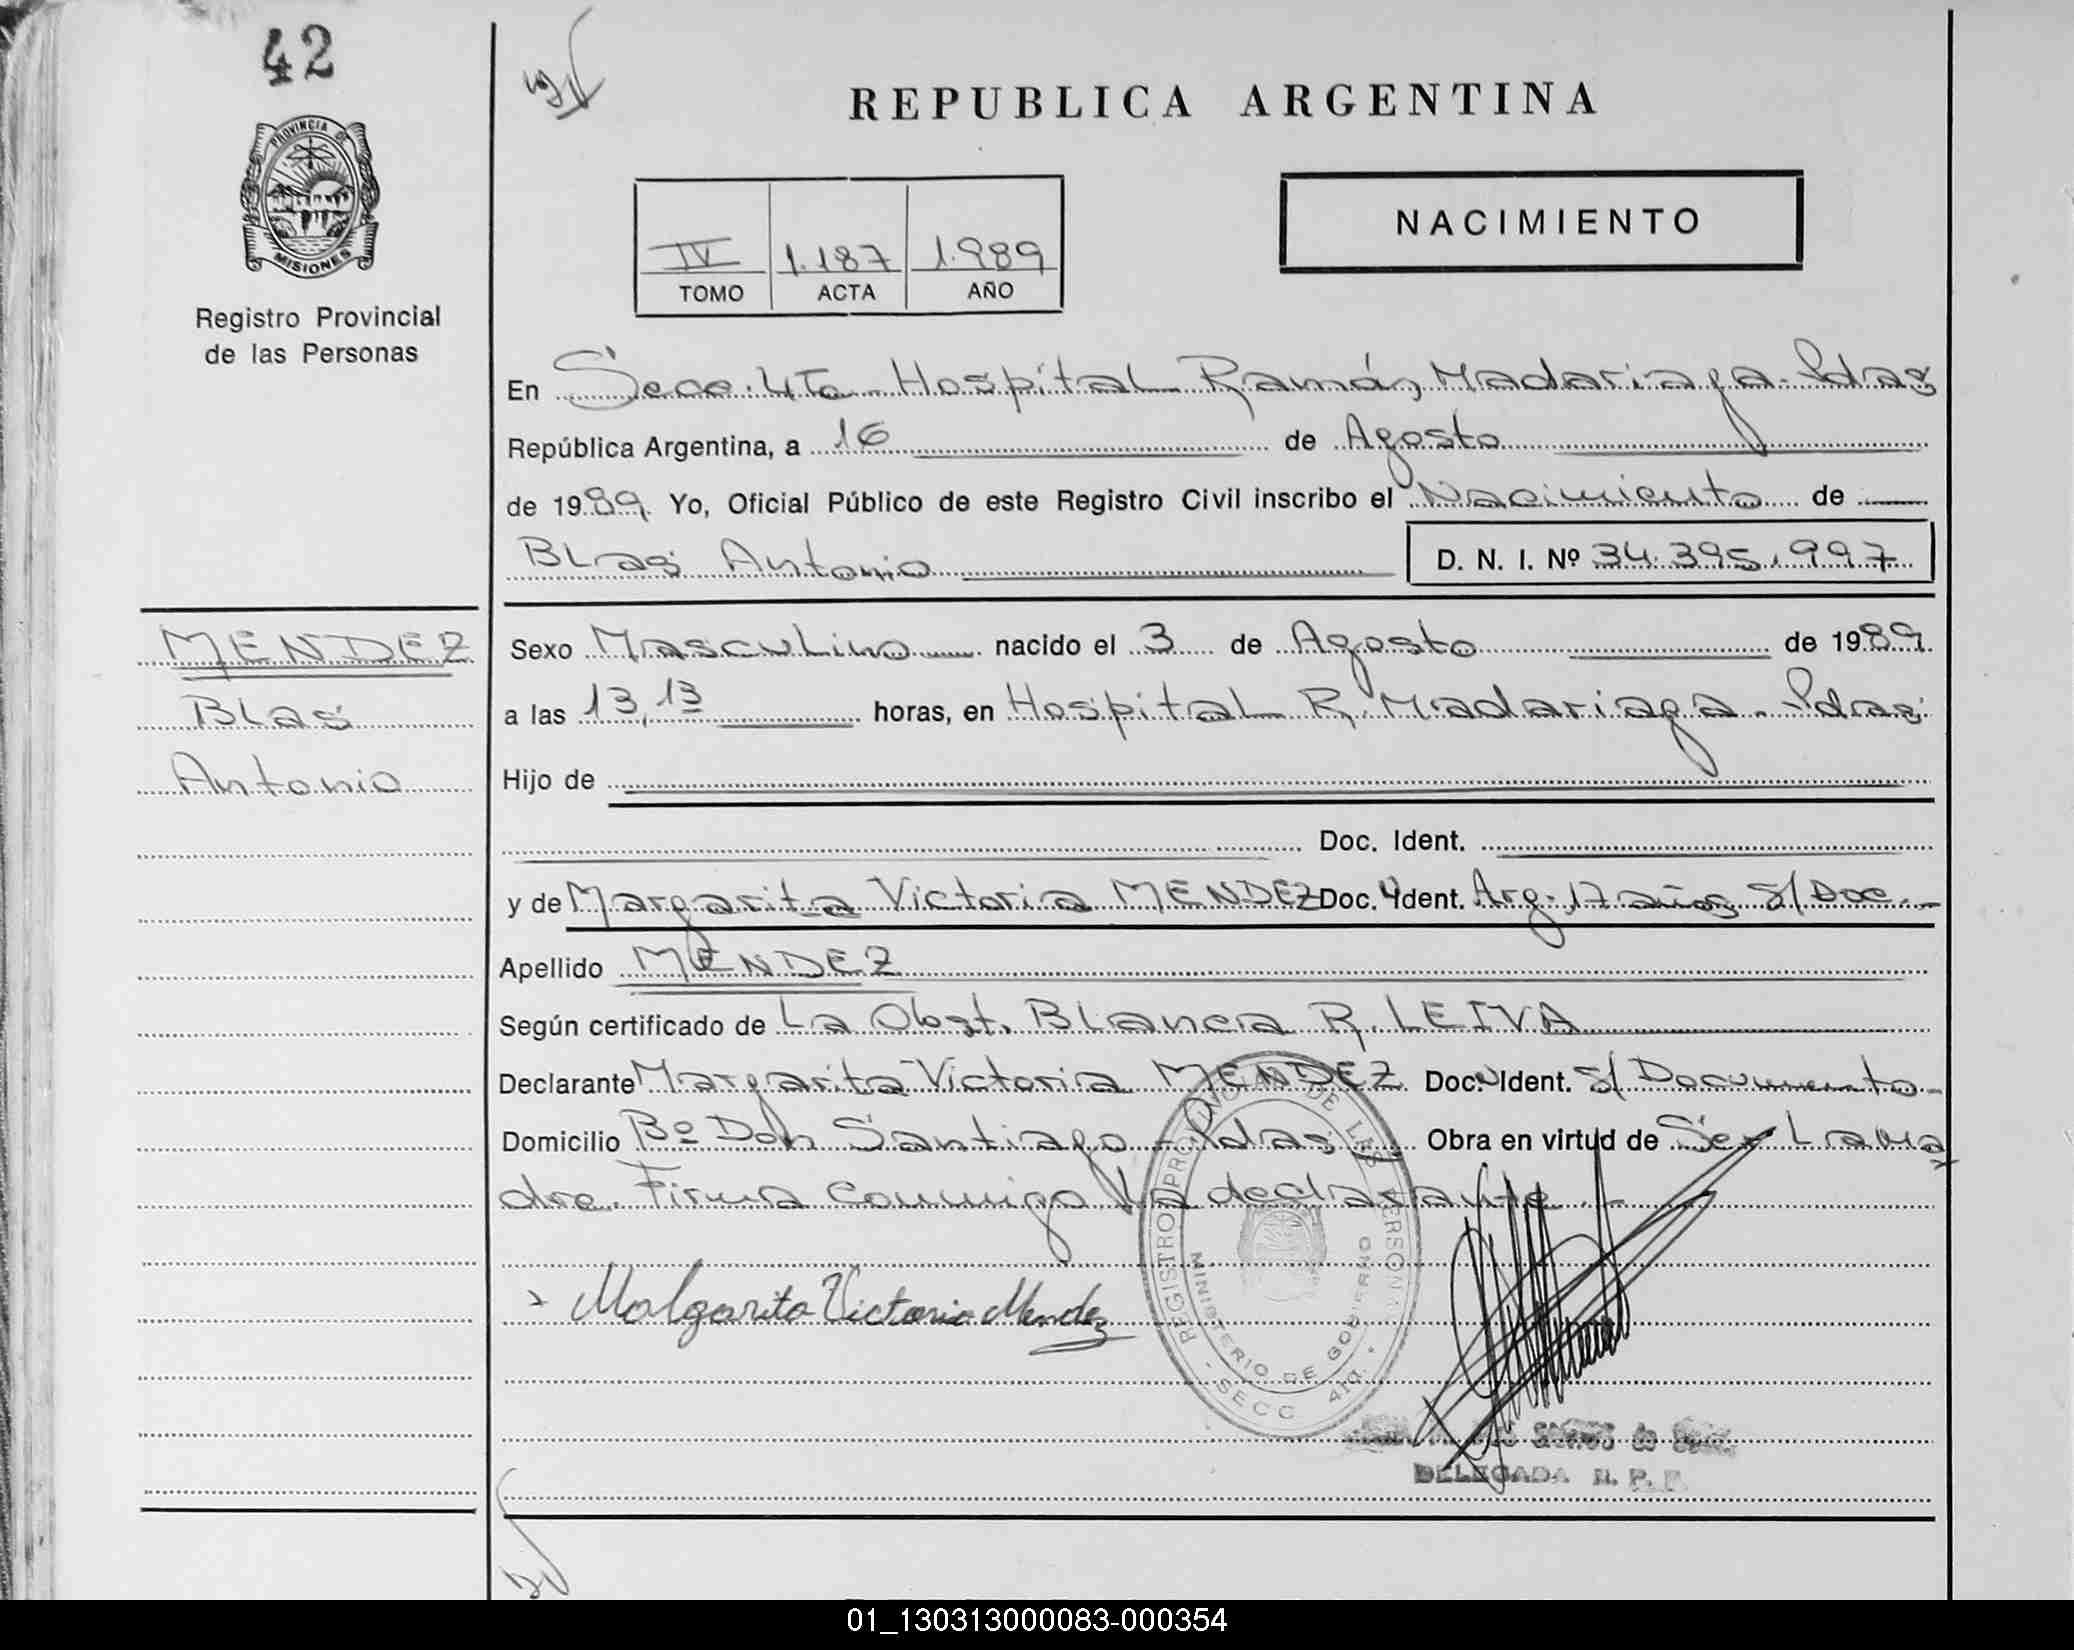 42
PROVINCIA DE
MISIONES
Registro Provincial
de las Personas
REPUBLICA ARGENTINA
IV 1.187 1.989
TOMO ACTA AÑO
NACIMIENTO
En Secc. 4ta - Hospital Ramón Madariaga - Pdas
República Argentina, a 16 de Agosto
de 1989. Yo, Oficial Público de este Registro Civil inscribo el Nacimiento de
Blas Antonio D. N. I. Nº 34.395.997
MENDEZ
Blas
Antonio
Sexo Masculino nacido el 3 de Agosto de 1989.
a las 13,13 horas, en Hospital R. Madariaga - Pdas.
Hijo de
Doc. Ident.
y de Margarita Victoria MENDEZ Doc. Ident. Arg. 17 años S/ Doc. -
Apellido MENDEZ
Según certificado de La Obst. Blanca R. LEIVA
Declarante Margarita Victoria MENDEZ Doc. Ident. S/ Documento -
Domicilio Bº Don Santiago - Pdas. Obra en virtud de Ser La Ma
dre. Firma conmigo la declarante. -
Malgarita Victoria Mendez
REGISTRO PROVINCIAL DE LAS PERSONAS
MINISTERIO DE GOBIERNO
- SECC 4ta. -
DELEGADA R. P. P.
01_130313000083-000354